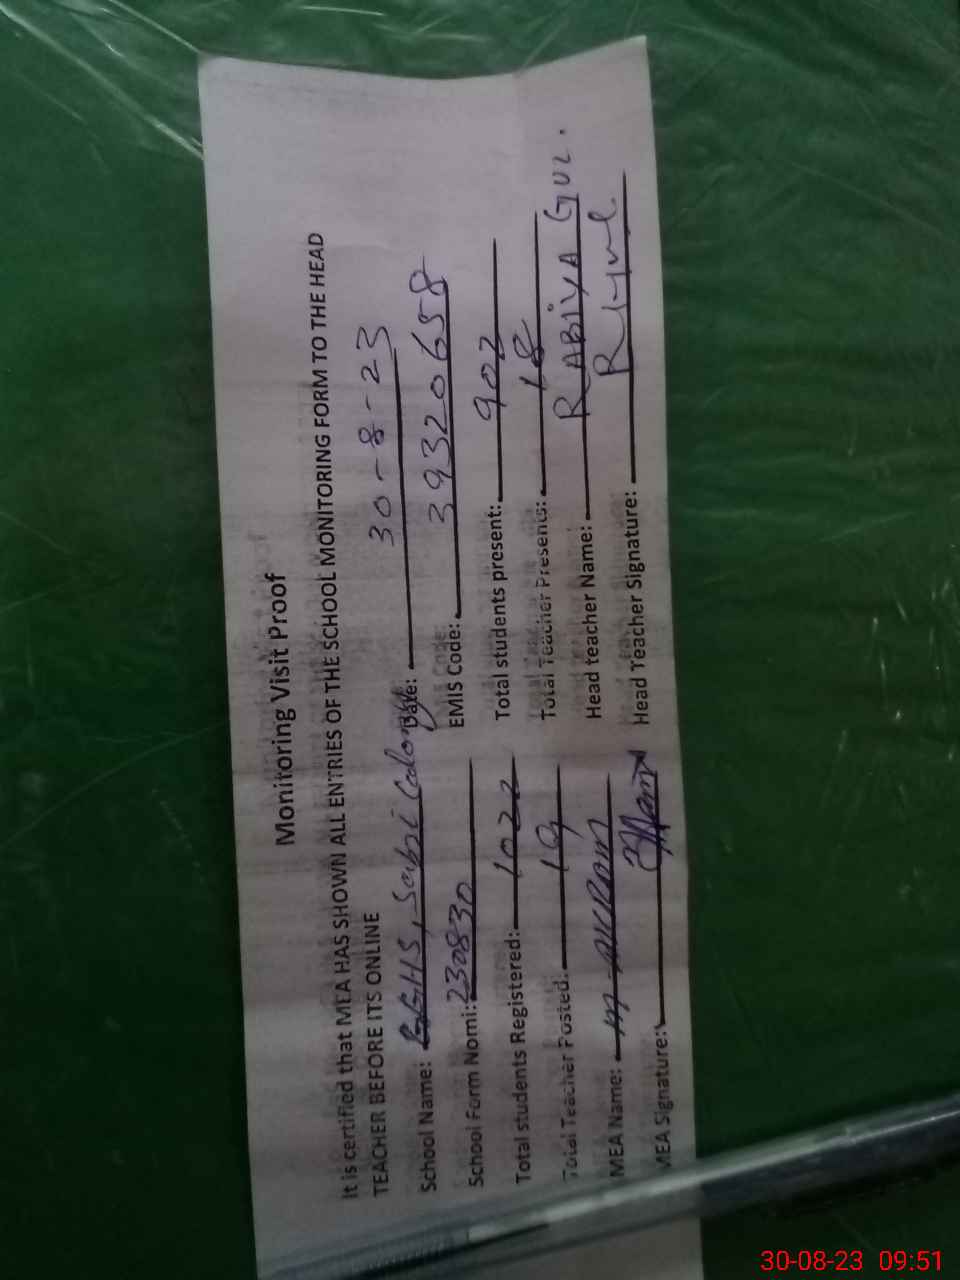 Monitoring Visit Proof
It is certified that MEA HAS SHOWN ALL ENTRIES OF THE SCHOOL MONITORING FORM TO THE HEAD
TEACHER BEFORE ITS ONLINE
School Name: GGHS, Sabri Colony Date: 30-8-23
School Form Nomi: 230830 EMIS Code: 39320658
Total students Registered: 1022 Total students present: 902
Total Teacher Posted: 19 Total Teacher Presents: 18
MEA Name: M-AKRAM Head teacher Name: RABIYA GUL.
MEA Signature: Head Teacher Signature:
30-08-23 09:51